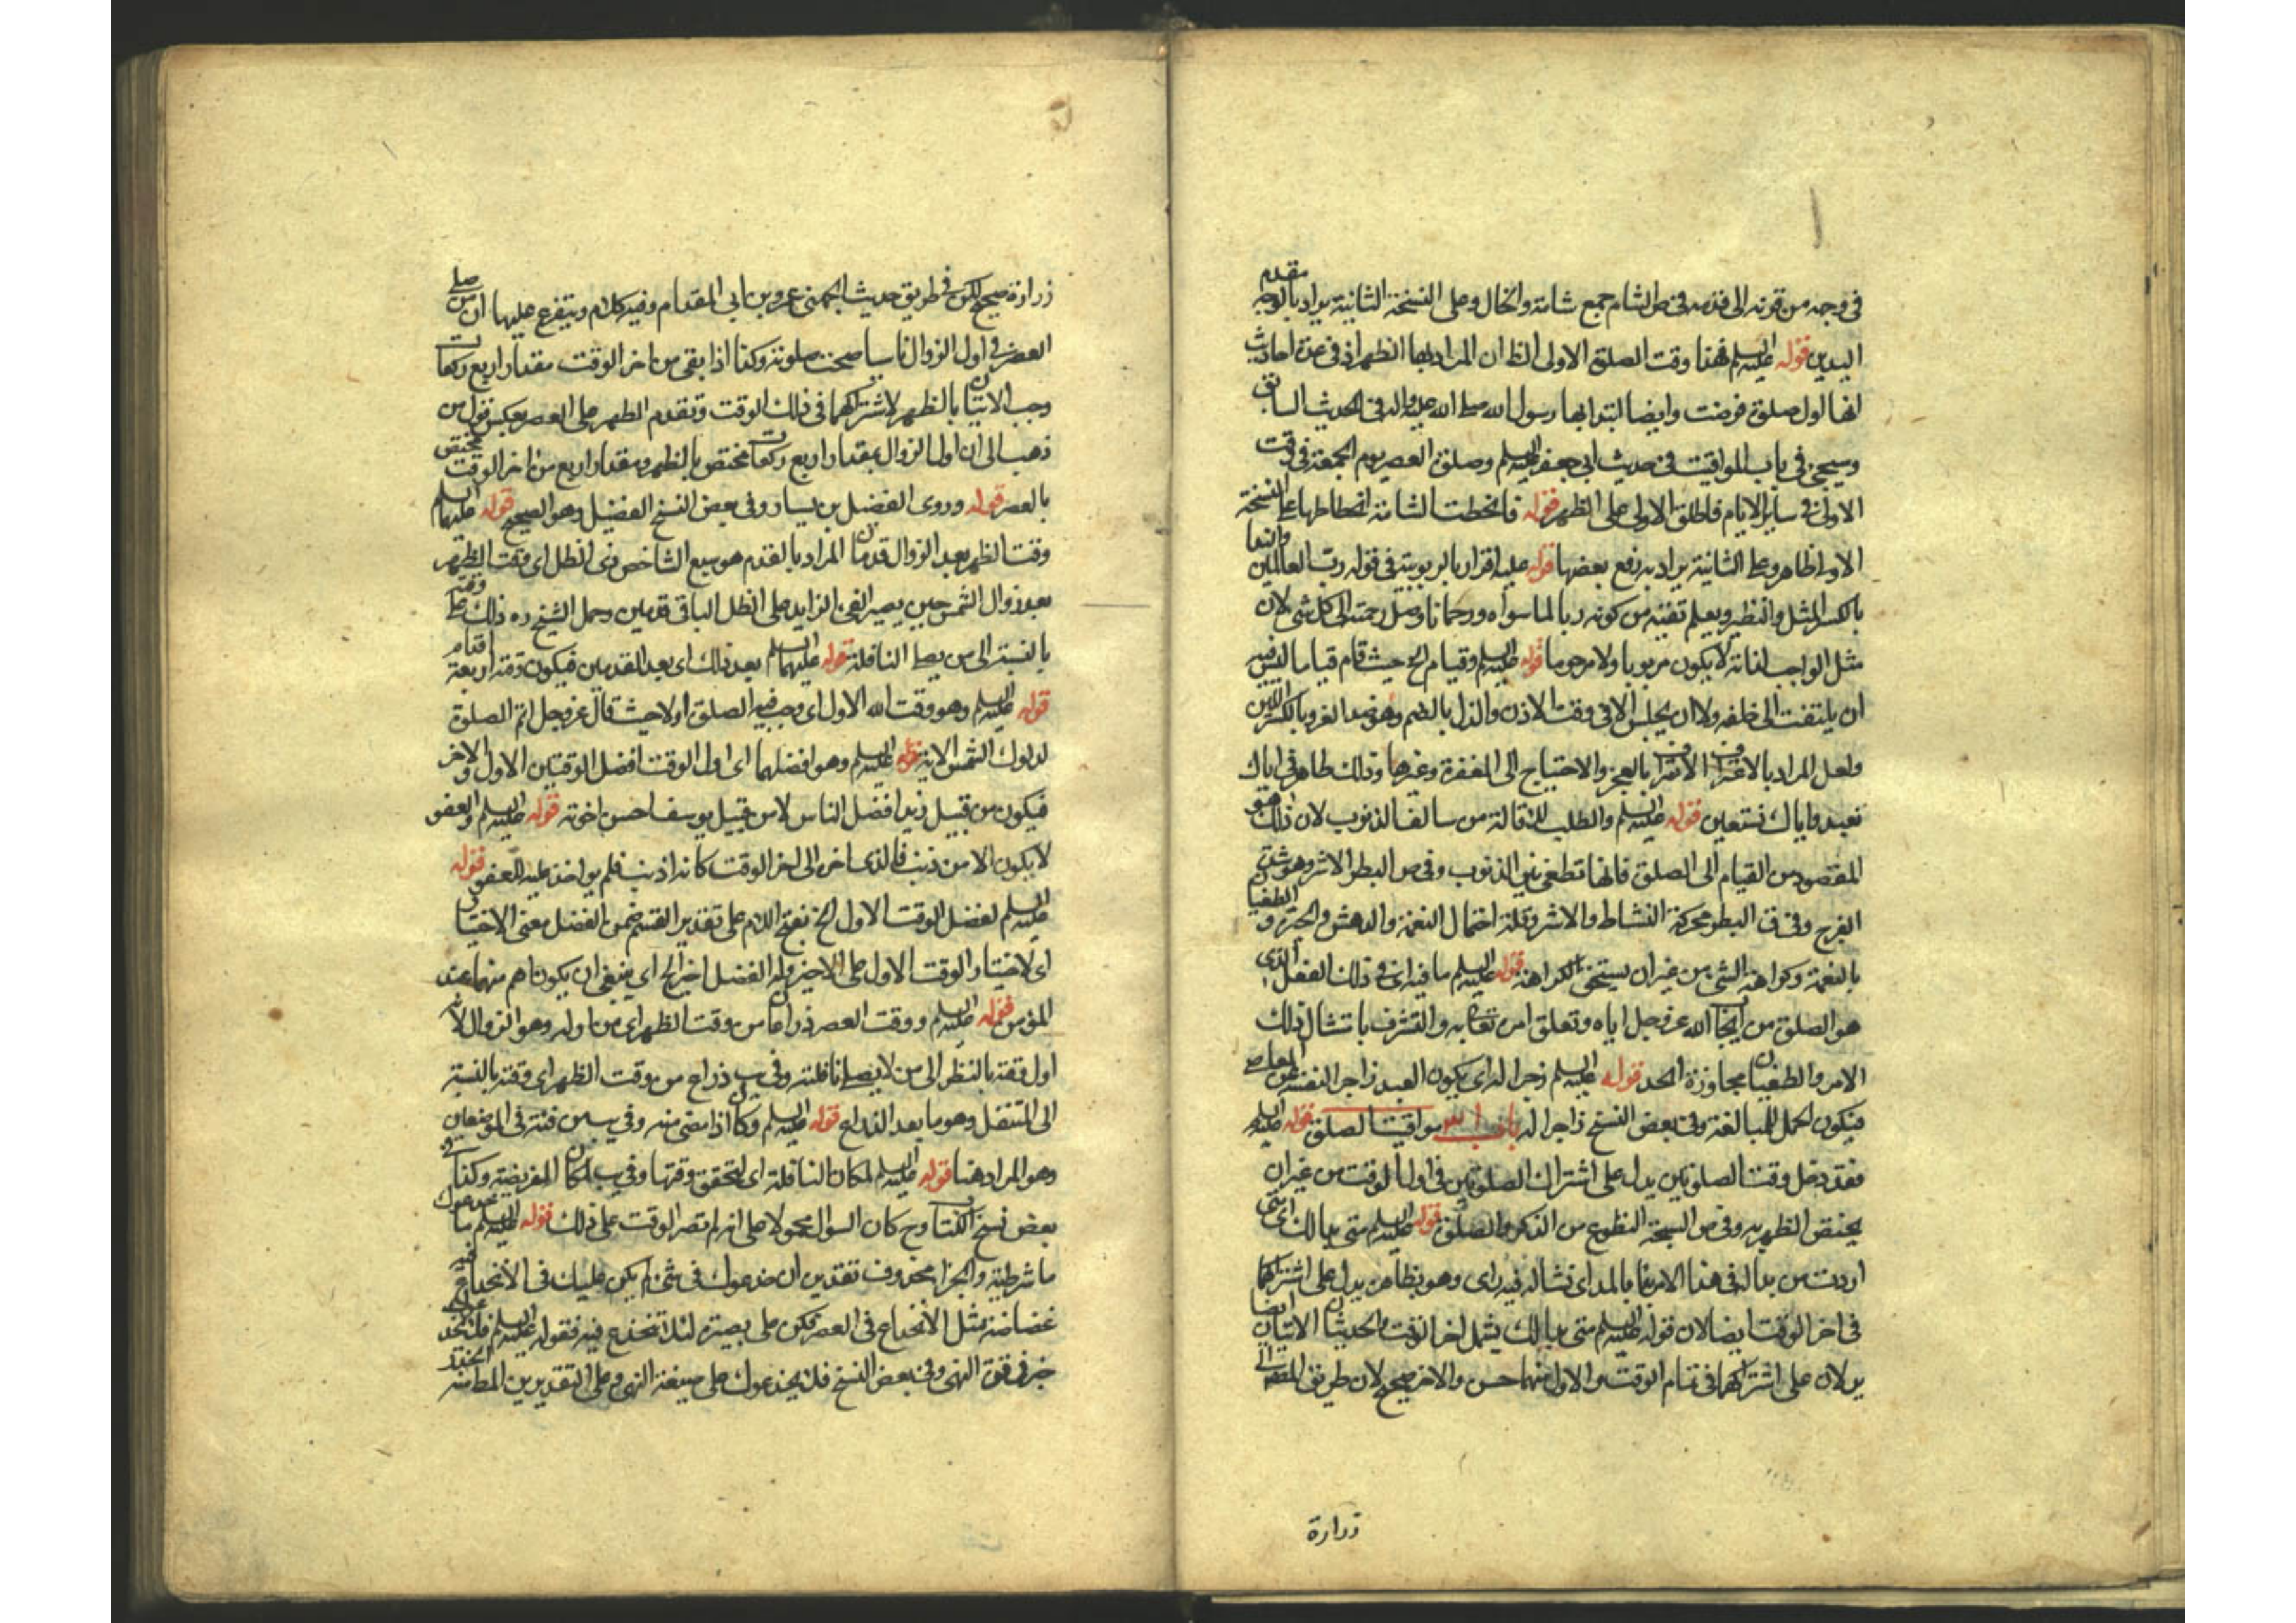 في وجهه من قرنه الى قدمه في ص الشام جمع شامة والخال وعلى النسخة الثانية يراد بالوجه مقدم
البدين قوله عليه السلم فهذا وقت الصلوة الاولى الظ ان المراد بها الظهر اذ في عدة احاديث
انها اول صلوة فرضت وايضا ابتدا بها رسول الله صلى الله عليه واله في الحديث السابق
وسيجئ في باب المواقيت في حديث ابي جعفر عليه السلم وصلوة العصر يوم الجمعة في وقت
الاولى في ساير الايام فاطلق الاولى على الظهر قوله فانحطت الشامة انحطاطها على النسخة
الاولى ظاهر وعلى الثانية يراد به رفع بعضها قوله عليه اقرار بالربوبية في قوله رب العالمين وانها
بالكسر المثل والنظير ويعلم نفيه من كونه ربا لما سواه ورحمانا وصل رحمته الى كل شئ لان
مثل الواجب لذاته لا يكون مربوبا ولا مرحوما قوله عليه السلم وقيام الخ حيث قام قياما ليس فيه
ان يلتفت الى خلفه ولا ان يجلس الا في وقت الاذن والذل بالضم وهو ضد العز وبالكسر اللين
ولعل المراد بالاعتراف الاعتراف بالعجز والاحتياج الى المغفرة وغيرها وذلك ظاهر في اياك
نعبد واياك نستعين قوله عليه السلم والطلب للاقالة من سالف الذنوب لان ذلك هو
المقصود من القيام الى الصلوة فانها تطفئ نيران الذنوب وفي ص البطر الاشر وهو شدة
الفرح وفي ق البطر محركة النشاط والاشر وقلة احتمال النعمة والدهش والحيرة و الطغيان
بالنعمة وكراهة الشئ من غير ان يستحق الكراهة قوله عليه السلم ما فيه اي في ذلك الفعل الذي
هو الصلوة من ايجاب الله عز وجل اياه وتعلق امره تعالى به والتشرف بامتثال ذلك
الامر والطغيان مجاوزة الحد قوله عليه السلم زجرا له اي يكون العبد زاجرا لنفسه عن المعاصي
فيكون الحمل للمبالغة وفي بعض النسخ زاجرا له باب مواقيت الصلوة قوله عليه السلم
فقد دخل وقت الصلوتين يدل على اشتراك الصلوتين في اول الوقت من غير ان
يختص الظهر به وفي ص السبحة التطوع من الذكر والصلوة قوله عليه السلم متى بدا لك اي متى
اردت من بدا له في هذا الامر بدا بالمد اي نشا له فيه راى وهو بظاهره يدل على اشتراكهما
في اخر الوقت ايضا لان قوله عليه السلم متى بدا لك يشمل اخر الوقت والحديثان الاتيان ايضا
يدلان على اشتراكهما في تمام الوقت والاول منهما حسن والاخر صحيح لان طريق المصنف الى
زرارة
زرارة صحيح لكن في طريق حديث الجهني عمرو بن ابي المقدام وفيه كلام ويتفرع عليها ان من صلى
العصر في اول الزوال ناسيا صحت صلوته وكذا اذا بقي من اخر الوقت مقدار اربع ركعات
وجب الاتيان بالظهر لاشتراكهما في ذلك الوقت وتقدم الظهر على العصر بعكس قول من
ذهب الى ان اول الزوال بمقدار اربع ركعات مختص بالظهر ومقدار اربع من اخر الوقت مختص
بالعصر قوله وروى الفضل بن يسار وفي بعض النسخ الفضيل وهو الصحيح قوله عليهما السلم
وقت الظهر بعد الزوال قدمان المراد بالقدم هو سبع الشاخص ذي الظل اي وقت الظهر
بعد زوال الشمس حين يصير الفئ الزايد على الظل الباقي قدمين وحمل الشيخ ره ذلك على وقته
بالنسبة الى من يصلي النافلة قوله عليهما السلم بعد ذلك اي بعد القدمين فيكون وقته اربعة اقدام
قوله عليه السلم وهو وقت الله الاول اي وجب فيه الصلوة اولا حيث قال عز وجل اقم الصلوة
لدلوك الشمس الاية قوله عليه السلم وهو افضلهما اي اول الوقت افضل الوقتين الاول والاخر
فيكون من قبيل زيد افضل الناس لا من قبيل يوسف احسن اخوته قوله عليه السلم والعفو
لا يكون الا من ذنب فالذي اخر الى اخر الوقت كانه اذنب فلم يواخذ عليه للعفو قوله
عليه السلم لفضل الوقت الاول الخ بفتح اللام على تقدير القسم ضمن الفضل معنى الاختيار
اي لاختيار الوقت الاول على الاخير وله الفضل اخيرا الخ اي ينبغي ان يكونا هم منهما عند
المؤمن قوله عليه السلم ووقت العصر ذراعا من وقت الظهر اي من اوله وهو الزوال لانه
اول وقته بالنظر الى من لا يصلي نافلته وفي يب ذراع من وقت الظهر اي وقته بالنسبة
الى المتنفل وهو ما بعد الذراع قوله عليه السلم وكان اذا مضى منه وفي يب من فيئه في الموضعين
وهو المراد هنا قوله عليه السلم لمكان النافلة اي لتحقق وقتها وفي يب لمكان الفريضة وكذا في
بعض نسخ الكتاب وح كان السوال محمولا على انه لم تصر الوقت على ذلك قوله عليه السلم ما خدعوك
ما شرطية والجزا محذوف تقديره ان خدعوك في شئ لم يكن عليك في الانخداع فيه
غضاضة مثل الانخداع في العصر فكن على بصيرة لئلا تنخدع فيه فقوله عليه السلم فلا يخدعوك
خبر في قوة النهي وفي بعض النسخ فلا يخدعوك على صيغة النهي وعلى التقديرين المطامنه